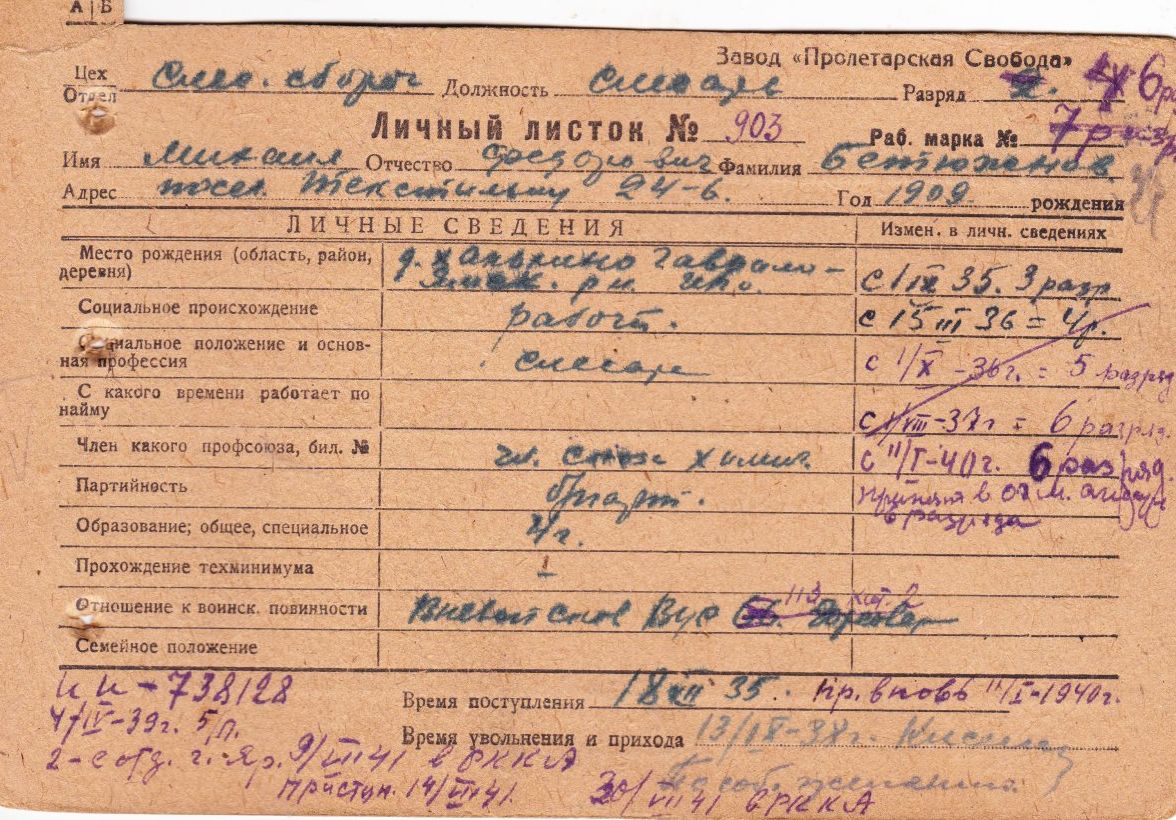 А | Б
Завод «Пролетарская Свобода»
Цех
Отдел Слес. сбороч Должность слесарь Разряд 2. 6 ра
Личный листок № 903 Раб. марка № 7 разр
Имя Михаил Отчество Федорович Фамилия Бетюханов
Адрес посел. Текстильщ 24-6. Год 1909 рождения
ЛИЧНЫЕ СВЕДЕНИЯ Измен. в личн. сведениях
Место рождения (область, район, деревня) д. Гаврило-Ямск. р-н. Ипо. с 1 IX 35. 3 разр
Социальное происхождение рабоч. с 15 III 36 = 4р.
Социальное положение и основная профессия слесарь с 1/X-36г. = 5 разряд
С какого времени работает по найму с 1/VIII-37г = 6 разряд.
Член какого профсоюза, бил. № чл. союза химич. с 11/I-40г. 6 разряд.
Партийность б/парт. принят в от. м.
6 разряда
Образование; общее, специальное 4г.
Прохождение техминимума -
Отношение к воинск. повинности Вневойсков Вус 113 кат. 2
Семейное положение
НИ-738128
Время поступления 18 XII 35. пр. вновь 11/I-1940г.
4/IV-39г. 5 п.
Время увольнения и прихода 13/IX-38г.
2-е отд. г. Яр. 9/VII 41 в РККА По соб. желанию.
Приступ. 14/VII 41. 30/VII 41 в РККА